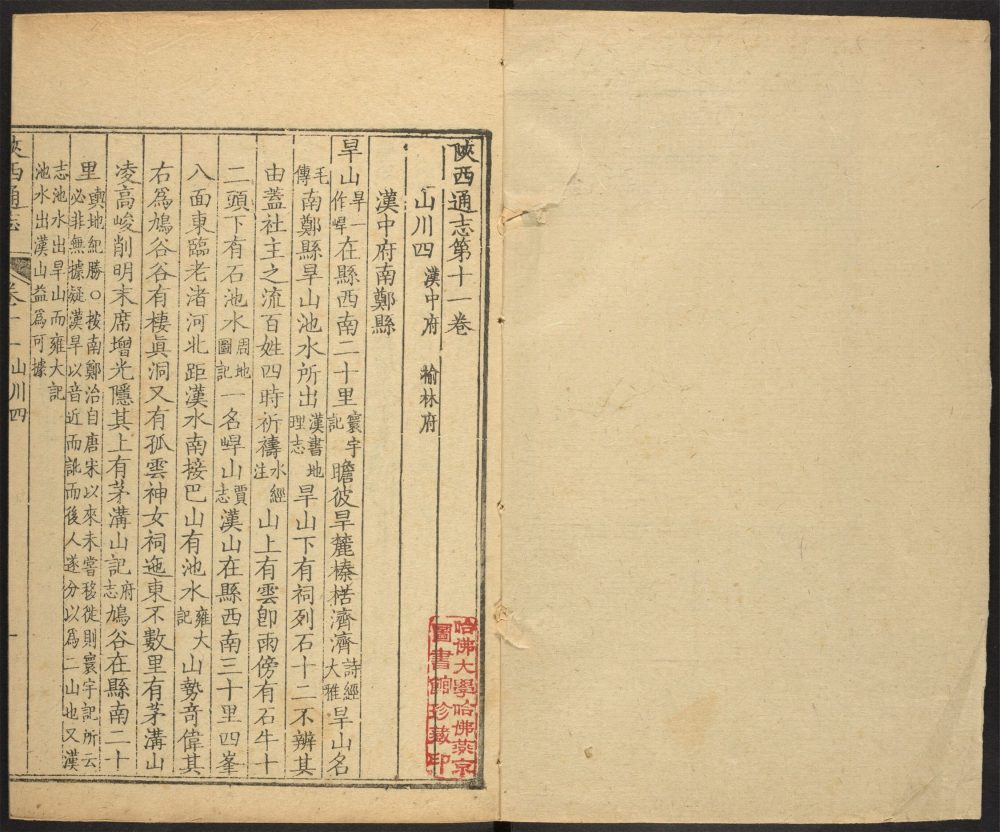 陝西通志第十一卷
山川四 漢中府 榆林府
漢中府南鄭縣
旱山旱一作㟁在縣西南二十里寰宇記瞻彼旱麓榛楛濟濟詩經大雅旱山名
毛傳南鄭縣旱山池水所出漢書地理志旱山下有祠列石十二不辨其
由蓋社主之流百姓四時祈禱水經注山上有雲卽雨傍有石牛十
二頭下有石池水周地圖記一名㟁山賈志漢山在縣西南三十里四峯
八面東臨老渚河北距漢水南接巴山有池水雍大記山勢奇偉其
右爲鳩谷谷有棲眞洞又有孤雲神女祠迤東不數里有茅溝山
凌高峻削明末席增光隱其上有茅溝山記府志鳩谷在縣南二十
里輿地紀勝○按南鄭治自唐宋以來未嘗移徙則寰宇記所云
必非無據疑漢旱以音近而訛而後人遂分以爲二山也又漢
志池水出旱山而雍大記
池水出漢山益爲可據
陝西通志 卷十一 山川四 一
哈佛大學哈佛燕京
圖書館珍藏印